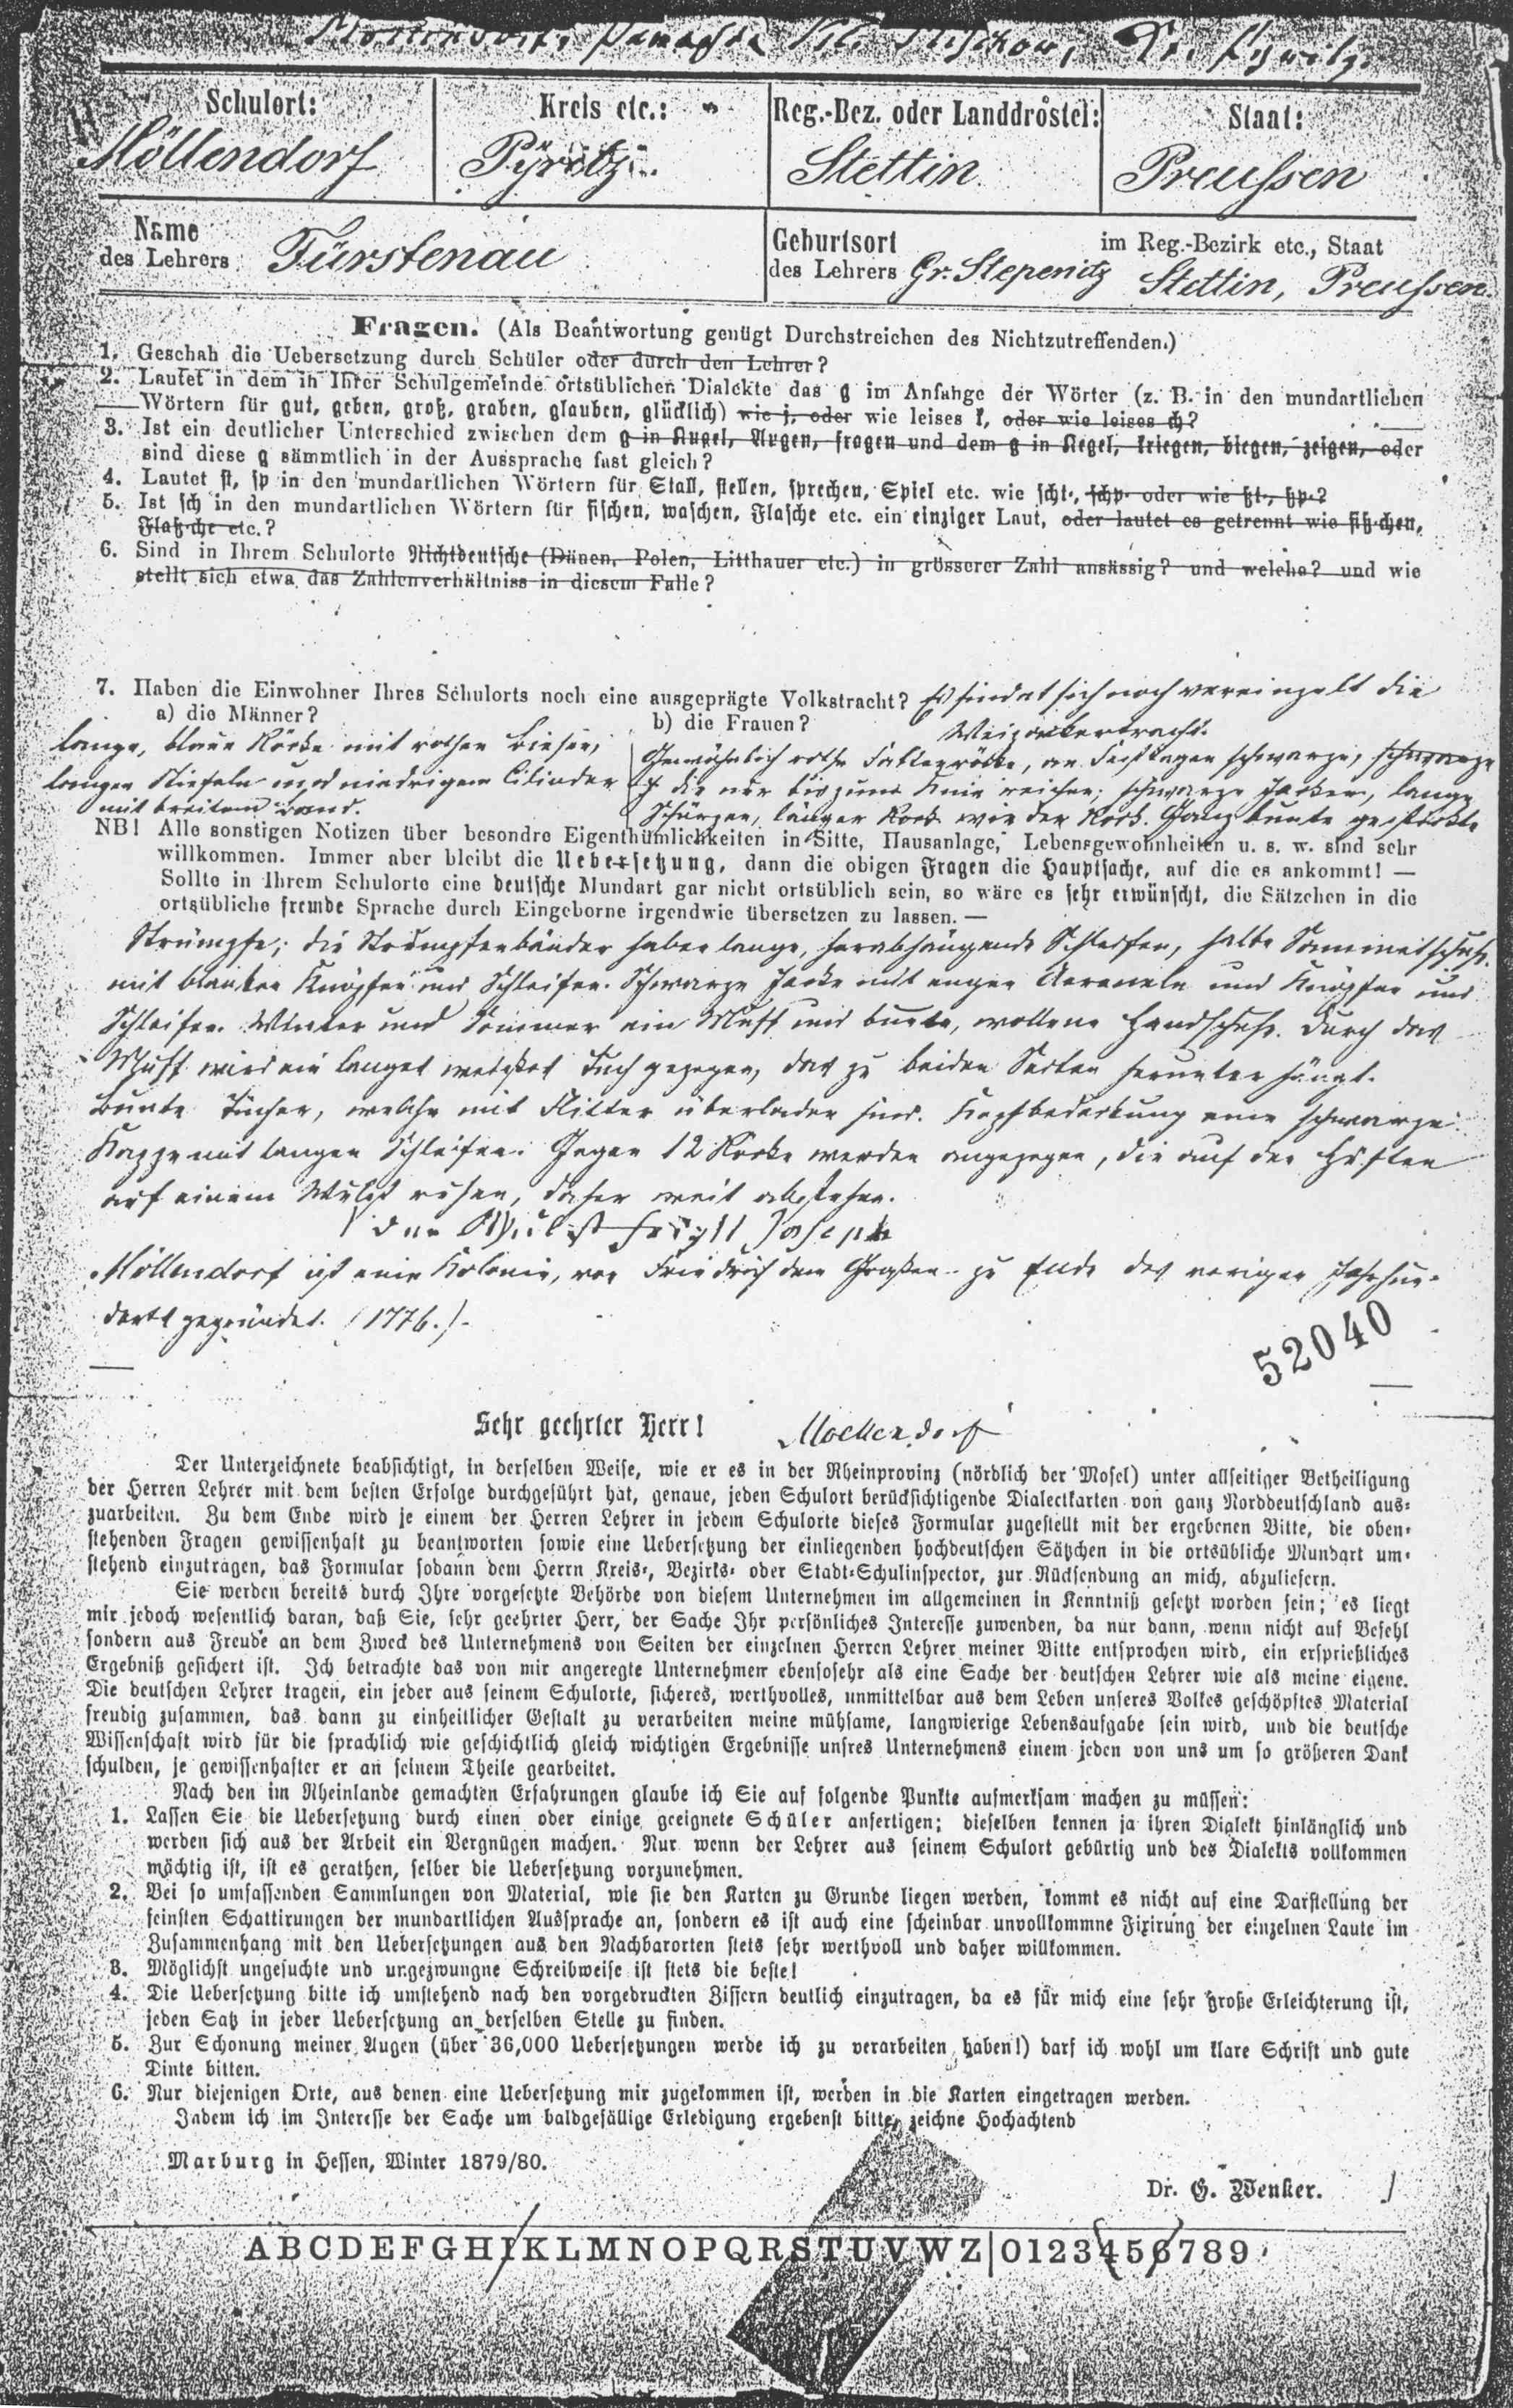 Schulort: Kreis etc.: Reg.-Bez. oder Landdrostei: Staat:
Möllendorf Pyritz Stettin Preussen
Name Geburtsort im Reg.-Bezirk etc., Staat
des Lehrers Fürstenau des Lehrers Gr. Stepenitz Stettin, Preussen.
Fragen. (Als Beantwortung genügt Durchstreichen des Nichtzutreffenden.)
1. Geschah die Uebersetzung durch Schüler oder durch den Lehrer?
2. Lautet in dem in Ihrer Schulgemeinde ortsüblichen Dialekte das g im Anfange der Wörter (z. B. in den mundartlichen
Wörtern für gut, geben, groß, graben, glauben, glücklich) wie j, oder wie leises k, oder wie leises ch?
3. Ist ein deutlicher Unterschied zwischen dem g in Kugel, Augen, fragen und dem g in Kegel, kriegen, biegen, zeigen, oder
sind diese g sämmtlich in der Aussprache fast gleich?
4. Lautet st, sp in den mundartlichen Wörtern für Stall, stellen, sprechen, Spiel etc. wie scht-, schp- oder wie ßt-, ßp-?
5. Ist sch in den mundartlichen Wörtern für fischen, waschen, Flasche etc. ein einziger Laut, oder lautet es getrennt wie fiß-chen,
Flaß-che etc.?
6. Sind in Ihrem Schulorte Nichtdeutsche (Dänen, Polen, Litthauer etc.) in grösserer Zahl ansässig? und welche? und wie
stellt sich etwa das Zahlenverhältniss in diesem Falle?
7. Haben die Einwohner Ihres Schulorts noch eine ausgeprägte Volkstracht? Es findet sich noch vereinzelt die
a) die Männer? b) die Frauen? Weizackertracht.
lange, blaue Röcke mit rothen Biesen, Gewöhnlich rothe Faltenröcke, an Festtagen schwarze, schwarze
langen Stiefeln und niedrigem Cilinder die nur bis zum Knie reichen; schwarze Jacken, lange
mit breitem Rand. Schürzen, länger wie der Rock. Ganz bunte gestickte
NB! Alle sonstigen Notizen über besondre Eigenthümlichkeiten in Sitte, Hausanlage, Lebensgewohnheiten u. s. w. sind sehr
willkommen. Immer aber bleibt die Uebersetzung, dann die obigen Fragen die Hauptsache, auf die es ankommt! —
Sollte in Ihrem Schulorte eine deutsche Mundart gar nicht ortsüblich sein, so wäre es sehr erwünscht, die Sätzchen in die
ortsübliche fremde Sprache durch Eingeborne irgendwie übersetzen zu lassen. —
Strümpfe; die Strumpfenbänder haben lange, herabhängende Schleifen, halbe Sammetschuh.
mit blanken Knöpfen und Schleifen. Schwarze Jacke mit engen Aermeln und Knöpfen und
Schleifen. Winter und Sommer ein Muff und bunte, wollene Handschuh. Durch das
Muff wird ein langes weißes Tuch gezogen, das zu beiden Seiten herunter hängt.
Bunte Tücher, welche mit Flitter überladen sind. Kopfbedeckung eine schwarze
Kappe mit langen Schleifen. Gegen 12 Röcke werden angezogen, die auf den Hüften
auf einem Wulst ruhen, daher weit abstehen.
Möllendorf ist eine Kolonie, von Friedrich dem Großen zu Ende des vorigen Jahrhun-
derts gegründet. (1776.)
52040
Sehr geehrter Herr! Moellendorf
Der Unterzeichnete beabsichtigt, in derselben Weise, wie er es in der Rheinprovinz (nördlich der Mosel) unter allseitiger Betheiligung
der Herren Lehrer mit dem besten Erfolge durchgeführt hat, genaue, jeden Schulort berücksichtigende Dialectkarten von ganz Norddeutschland aus-
zuarbeiten. Zu dem Ende wird je einem der Herren Lehrer in jedem Schulorte dieses Formular zugestellt mit der ergebenen Bitte, die oben-
stehenden Fragen gewissenhaft zu beantworten sowie eine Uebersetzung der einliegenden hochdeutschen Sätzchen in die ortsübliche Mundart um-
stehend einzutragen, das Formular sodann dem Herrn Kreis-, Bezirks- oder Stadt-Schulinspector, zur Rücksendung an mich, abzuliefern.
Sie werden bereits durch Ihre vorgesetzte Behörde von diesem Unternehmen im allgemeinen in Kenntniß gesetzt worden sein; es liegt
mir jedoch wesentlich daran, daß Sie, sehr geehrter Herr, der Sache Ihr persönliches Interesse zuwenden, da nur dann, wenn nicht auf Befehl
sondern aus Freude an dem Zweck des Unternehmens von Seiten der einzelnen Herren Lehrer meiner Bitte entsprochen wird, ein ersprießliches
Ergebniß gesichert ist. Ich betrachte das von mir angeregte Unternehmen ebensosehr als eine Sache der deutschen Lehrer wie als meine eigene.
Die deutschen Lehrer tragen, ein jeder aus seinem Schulorte, sicheres, werthvolles, unmittelbar aus dem Leben unseres Volkes geschöpftes Material
freudig zusammen, das dann zu einheitlicher Gestalt zu verarbeiten meine mühsame, langwierige Lebensaufgabe sein wird, und die deutsche
Wissenschaft wird für die sprachlich wie geschichtlich gleich wichtigen Ergebnisse unsres Unternehmens einem jeden von uns um so größeren Dank
schulden, je gewissenhafter er an seinem Theile gearbeitet.
Nach den im Rheinlande gemachten Erfahrungen glaube ich Sie auf folgende Punkte aufmerksam machen zu müssen:
1. Lassen Sie die Uebersetzung durch einen oder einige geeignete Schüler anfertigen; dieselben kennen ja ihren Dialekt hinlänglich und
werden sich aus der Arbeit ein Vergnügen machen. Nur wenn der Lehrer aus seinem Schulort gebürtig und des Dialekts vollkommen
mächtig ist, ist es gerathen, selber die Uebersetzung vorzunehmen.
2. Bei so umfassenden Sammlungen von Material, wie sie den Karten zu Grunde liegen werden, kommt es nicht auf eine Darstellung der
feinsten Schattirungen der mundartlichen Aussprache an, sondern es ist auch eine scheinbar unvollkommne Fixirung der einzelnen Laute im
Zusammenhang mit den Uebersetzungen aus den Nachbarorten stets sehr werthvoll und daher willkommen.
3. Möglichst ungesuchte und ungezwungne Schreibweise ist stets die beste!
4. Die Uebersetzung bitte ich umstehend nach den vorgedruckten Ziffern deutlich einzutragen, da es für mich eine sehr große Erleichterung ist,
jeden Satz in jeder Uebersetzung an derselben Stelle zu finden.
5. Zur Schonung meiner Augen (über 36,000 Uebersetzungen werde ich zu verarbeiten haben!) darf ich wohl um klare Schrift und gute
Tinte bitten.
6. Nur diejenigen Orte, aus denen eine Uebersetzung mir zugekommen ist, werden in die Karten eingetragen werden.
Indem ich im Interesse der Sache um baldgefällige Erledigung ergebenst bitte, zeichne Hochachtend
Marburg in Hessen, Winter 1879/80.
Dr. G. Wenker.
ABCDEFGHIKLMNOPQRSTUVWZ|0123456789